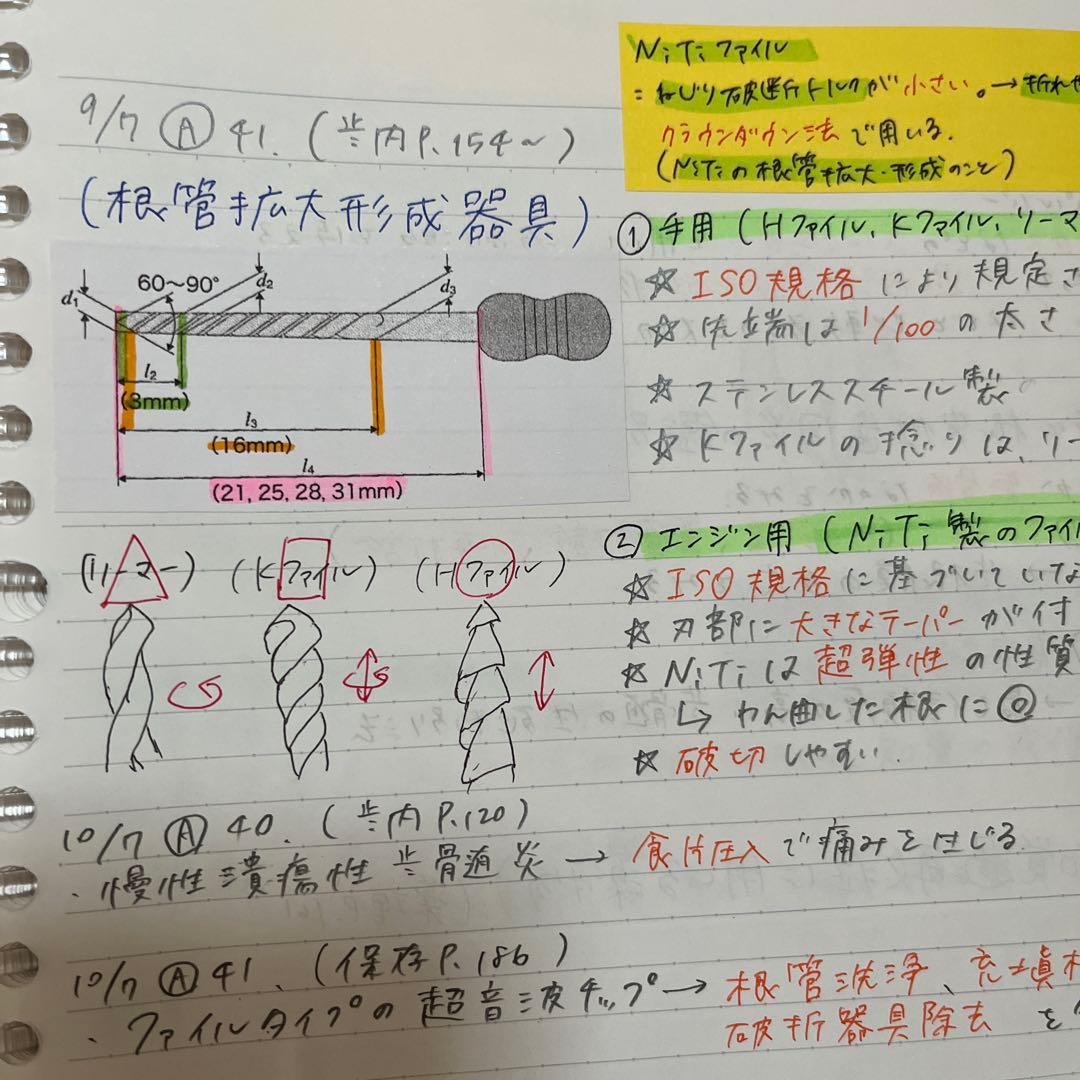 9/7 Ⓐ 41. (歯内P.154~)
(根管拡大形成器具)
60~90°
d₁
d₂
d₃
l₂
(3mm)
l₃
(16mm)
l₄
(21, 25, 28, 31mm)
(リーマー) (Kファイル) (Hファイル)
NiTiファイル
=ねじり破断トルクが小さい。→折れや
クラウンダウン法で用いる.
(NiTiの根管拡大・形成のこと)
① 手用 (Hファイル, Kファイル, リーマ
☆ ISO規格により規定さ
☆ 先端は1/100の太さ
☆ ステンレススチール製
☆ Kファイルの捻りは、リー
② エンジン用 (NiTi製のファイ
☆ ISO規格に基づいていな
☆ 刃部に大きなテーパーが付
☆ NiTiは超弾性の性質
↳ わん曲した根に◎
☆ 破切しやすい.
10/7 Ⓐ 40. (歯内P.120)
・慢性潰瘍性歯髄炎→食片圧入で痛みを生じる
10/7 Ⓐ 41. (保存P.186)
・ファイルタイプの超音波チップ→根管洗浄、充填材
破折器具除去を